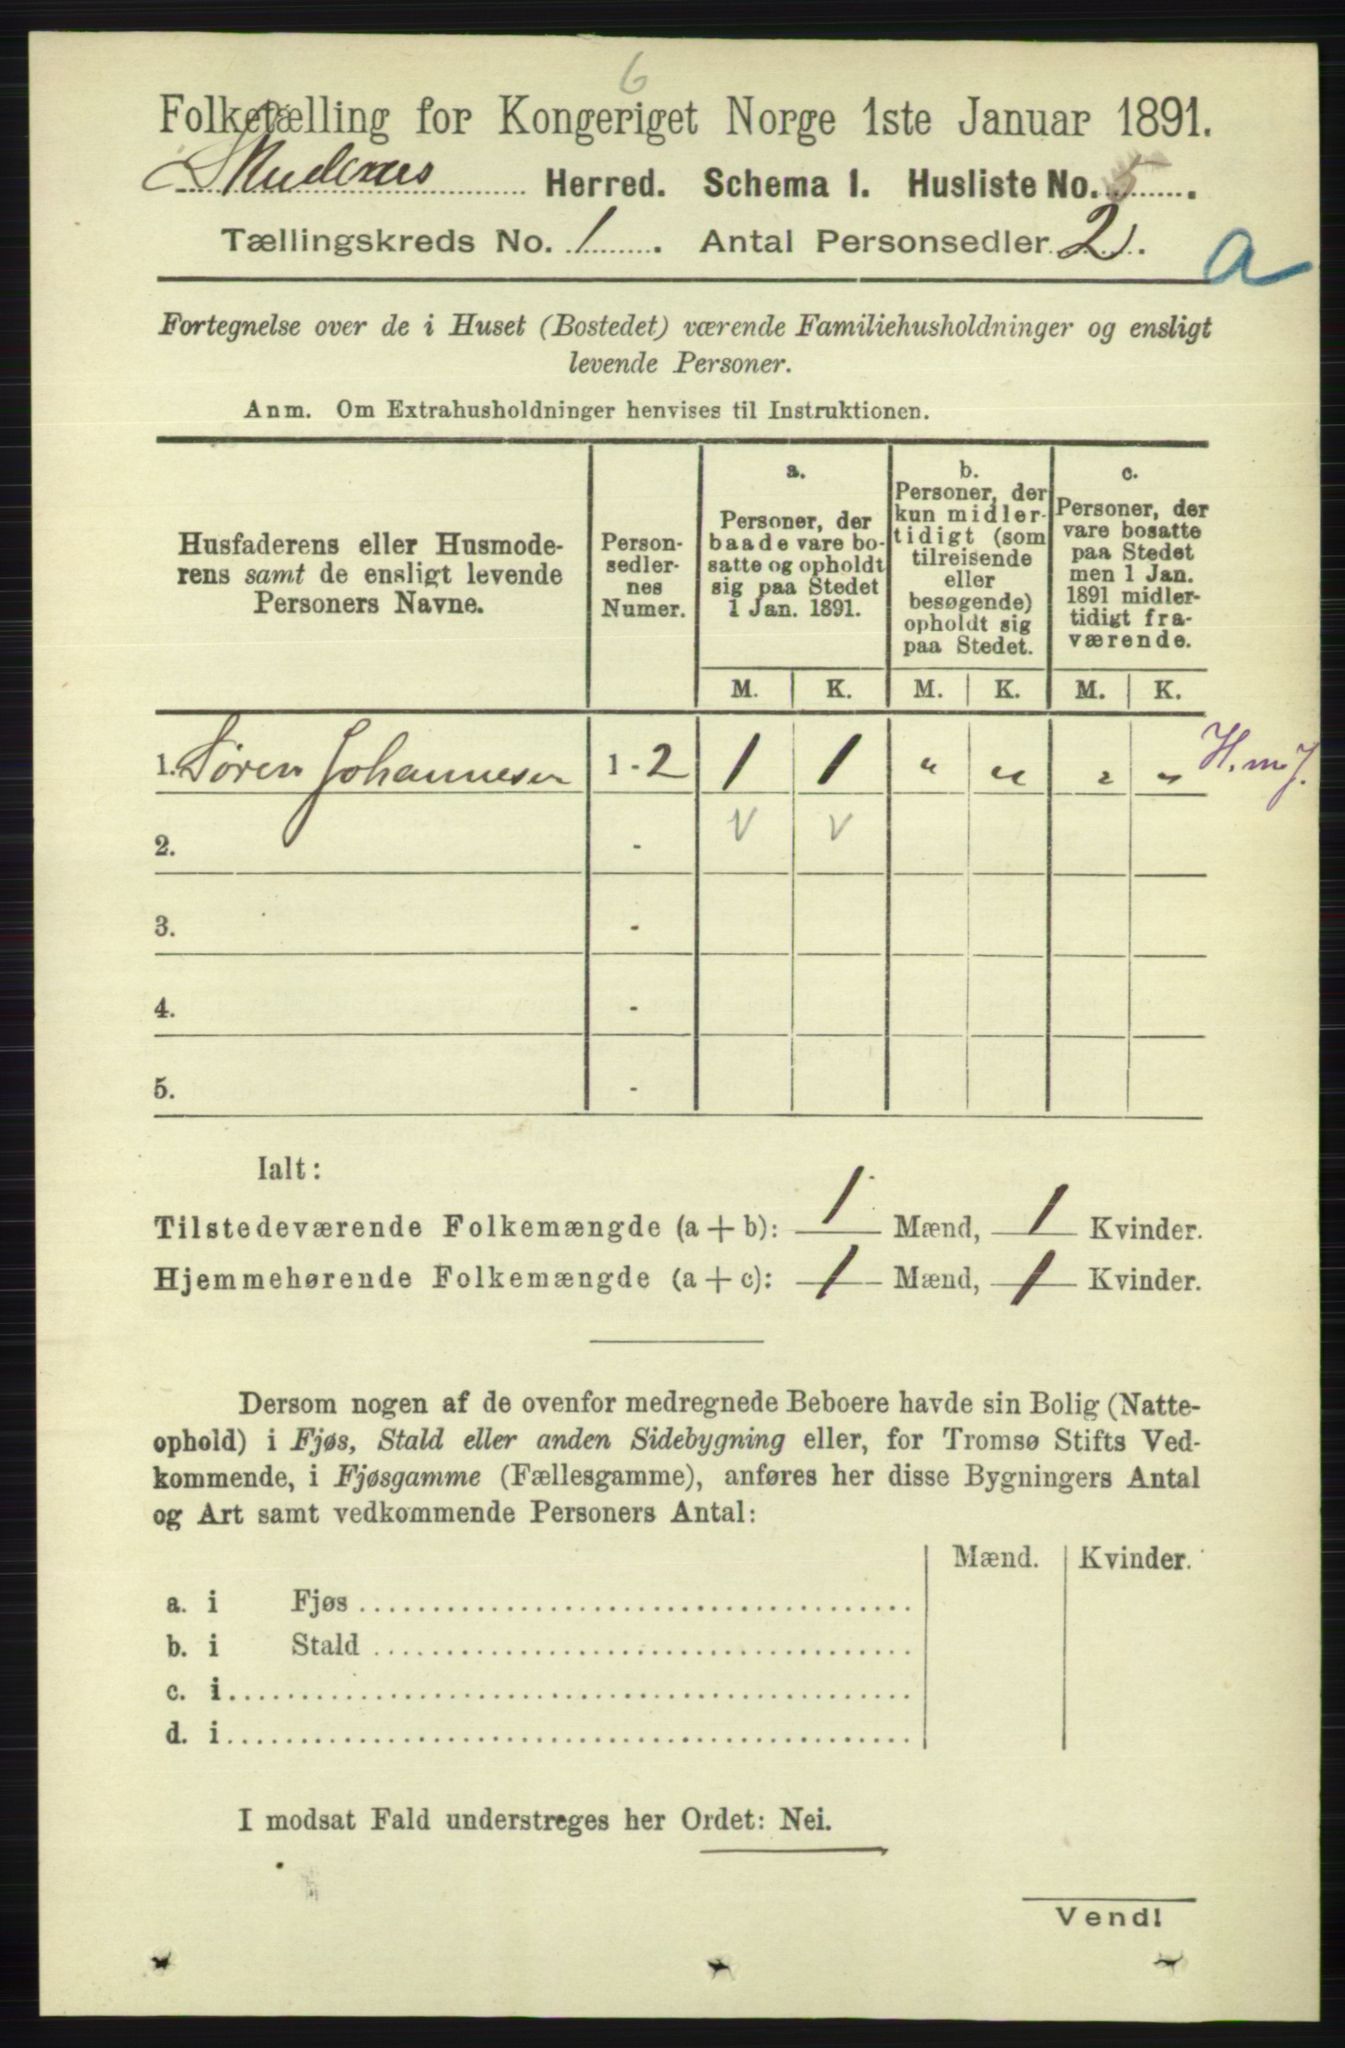 6
Folketælling for Kongeriget Norge 1ste Januar 1891.
Skudenæs Herred. Schema 1. Husliste No. 5.
Tællingskreds No. 1. Antal Personsedler 2.
a
Fortegnelse over de i Huset (Bostedet) værende Familiehusholdninger og ensligt
levende Personer.
Anm. Om Extrahusholdninger henvises til Instruktionen.
Husfaderens eller Husmode-
rens samt de ensligt levende
Personers Navne.
Person-
sedler-
nes
Numer.
a.
Personer, der
baade vare bo-
satte og opholdt
sig paa Stedet
1 Jan. 1891.
b.
Personer, der
kun midler-
tidigt (som
tilreisende
eller
besøgende)
opholdt sig
paa Stedet.
c.
Personer, der
vare bosatte
paa Stedet
men 1 Jan.
1891 midler-
tidigt fra-
værende.
M. K. M. K. M. K.
1. Søren Johannesen 1 - 2 1 1 " " " " H. m. J.
2. - V V
3. -
4. -
5. -
Ialt:
Tilstedeværende Folkemængde (a + b): 1 Mænd, 1 Kvinder.
Hjemmehørende Folkemængde (a + c): 1 Mænd, 1 Kvinder.
Dersom nogen af de ovenfor medregnede Beboere havde sin Bolig (Natte-
ophold) i Fjøs, Stald eller anden Sidebygning eller, for Tromsø Stifts Ved-
kommende, i Fjøsgamme (Fællesgamme), anføres her disse Bygningers Antal
og Art samt vedkommende Personers Antal:
Mænd. Kvinder.
a. i Fjøs
b. i Stald
c. i
d. i
I modsat Fald understreges her Ordet: Nei.
Vend!